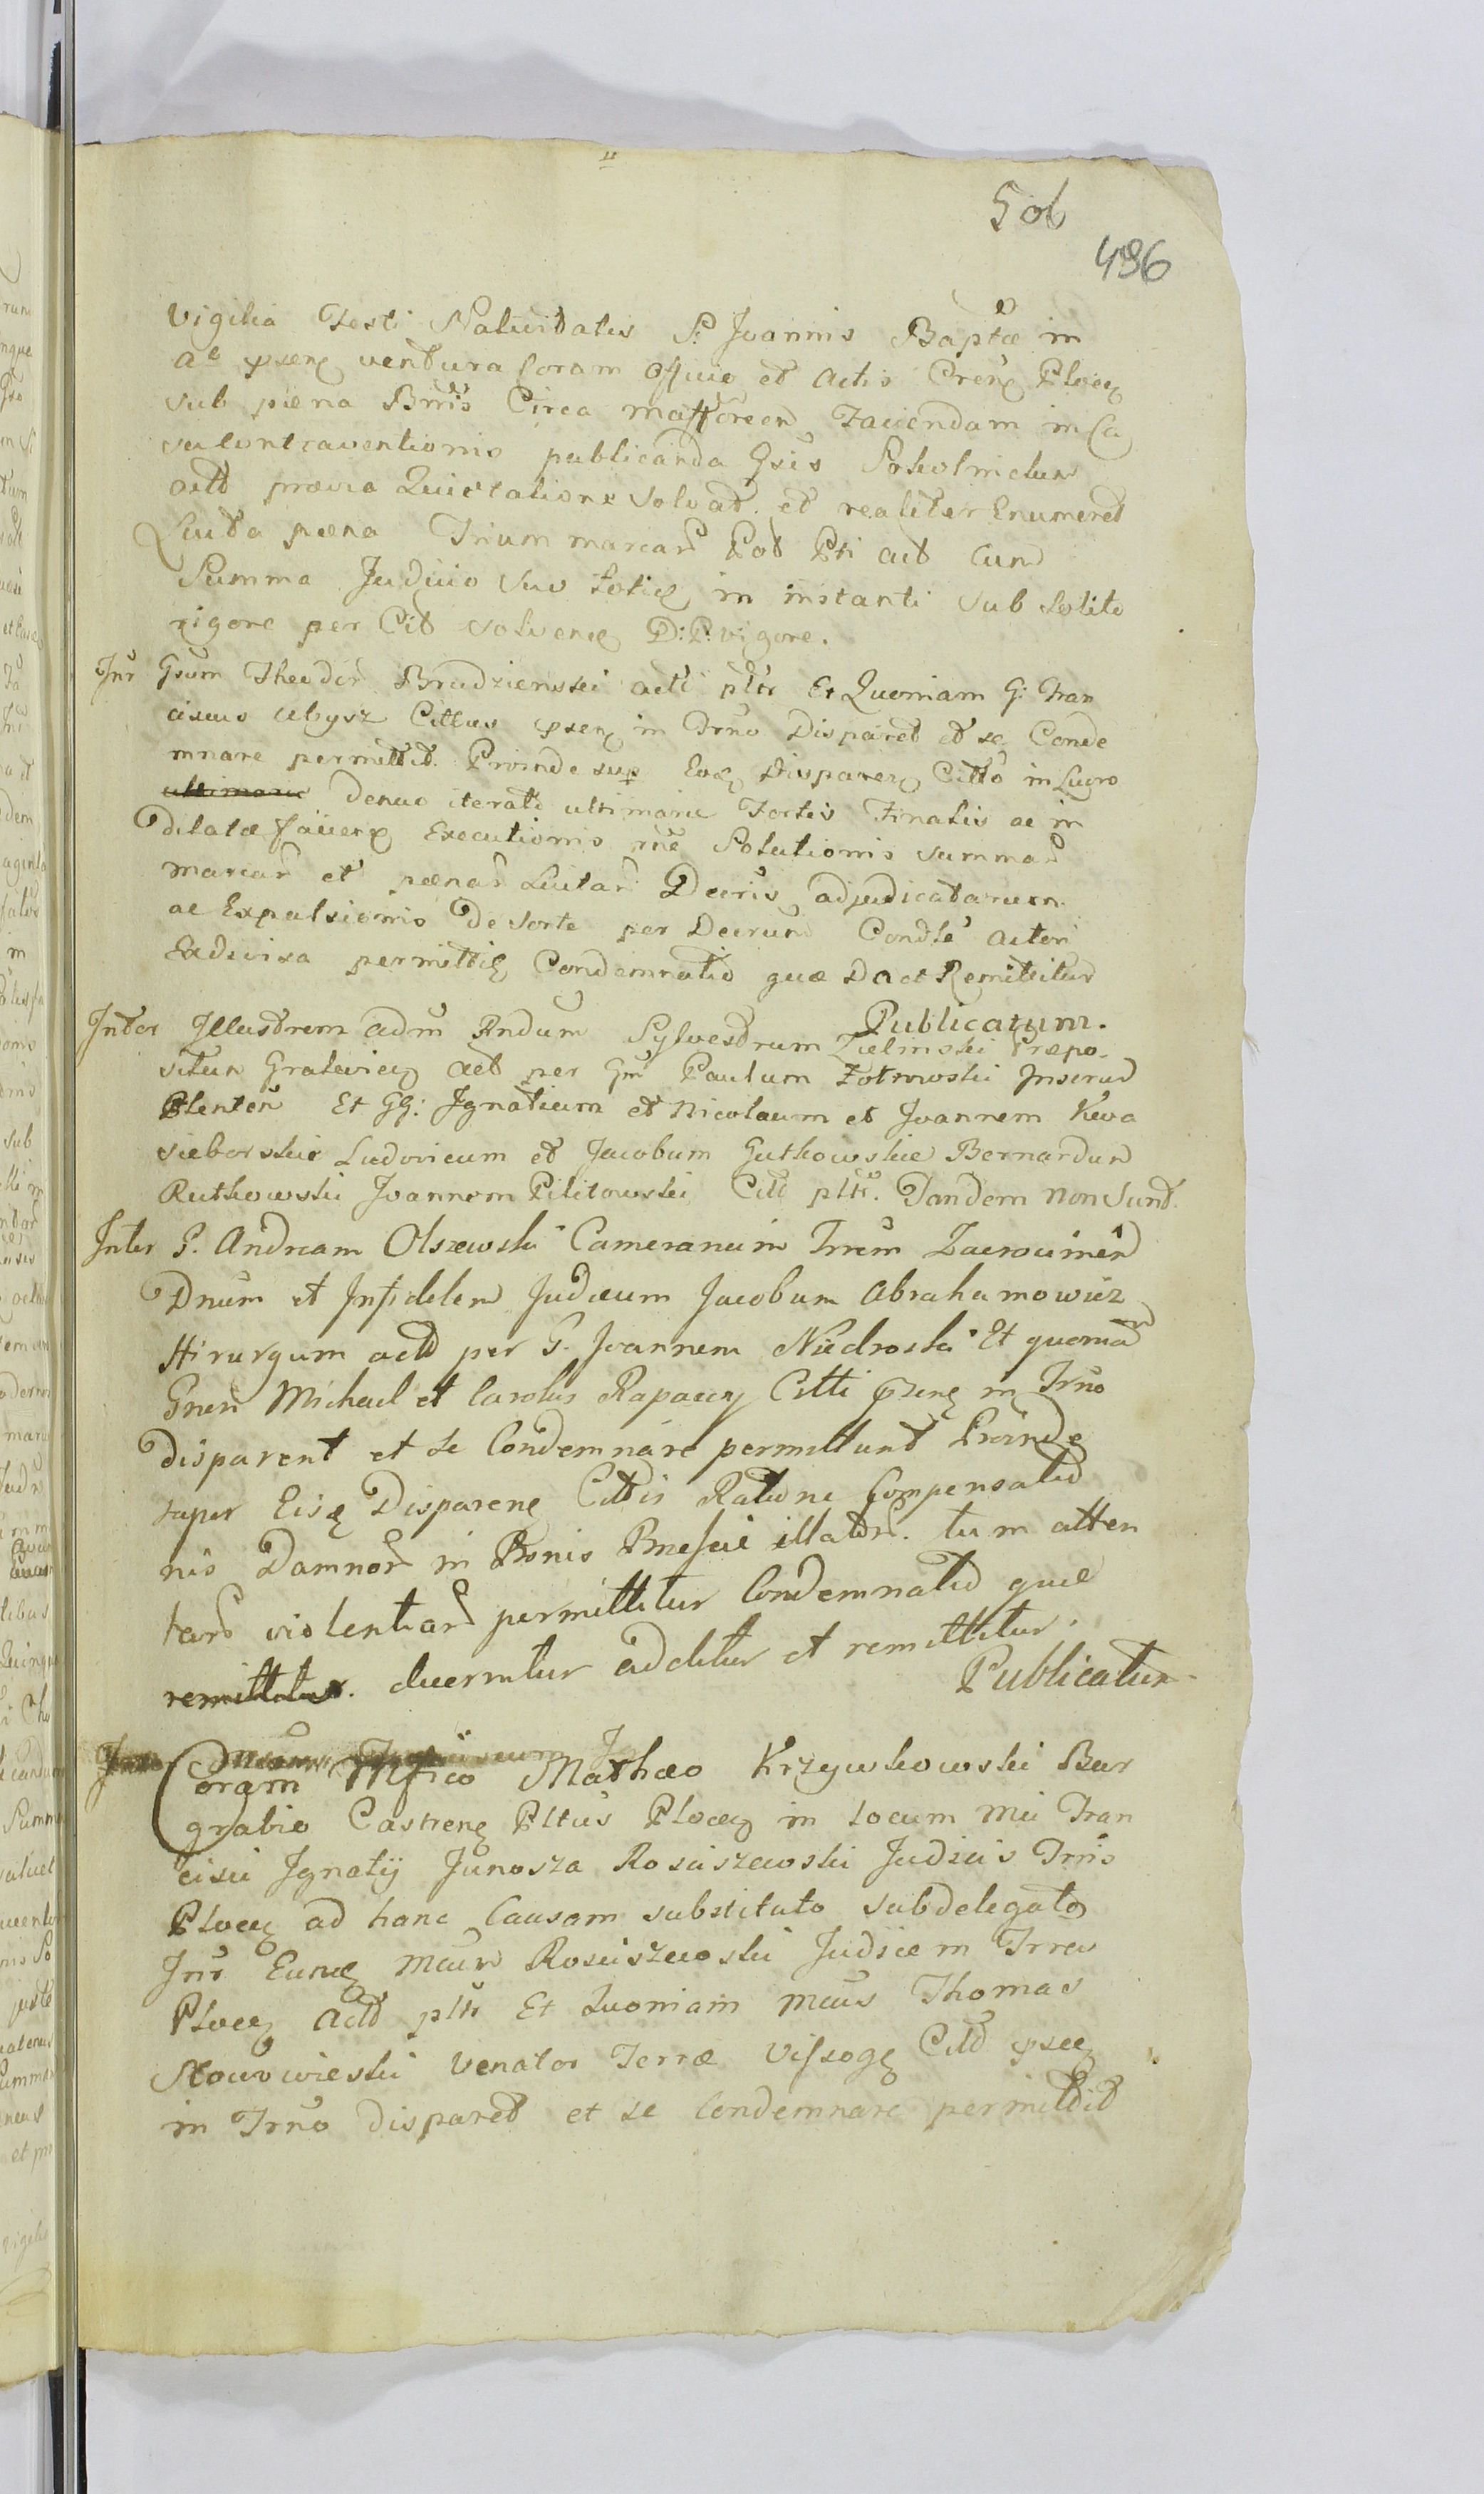 506
496
Vigilia Festi Nativitatis S: Joannis Baptæ in
ae psenꝫ ventura Coram Officio et Actis Crenꝫ Plocenꝫ
sub pæna Bnis Circa Faciendam in Ca
su Contraventionis publicanda Gsis
actō prævia Quietatione solvat. et realiter Enumeret
Luita pæna Trium marcar Pti act Cum
Summa Judicio suo in instanti sub solito
rigore per Cit D:P: vigore.
Inr Gsum Theodor Brudzienski actō pltr Et Quoniam G: Fran
ciscus Cittus psenꝫ in Trno Disparet et se Conde
mnare permittit. Proinde sup Eoꝫ Disparenꝫ Cittō in Lucro
ultimarie Denuo iterato ultimarie Fortis Finalis ac in
Dilatæ faciendꝫ Executionis rne Solutionis summar
marcar et pænar Luitar Decris adjudicatarum
ac Expulsionis De sorte per Decrum Condsc actori
Exdivisa permittiꝫ Condemnatio quæ Da et Remittitur
Publicatum.
Inter Illustrem adm Rndum Sylvestrum Zielinski Præpo-
situm act per Gm Paulum Żotrowski
Plenten Et GG: Ignatium et Nicolaum et Joannem Kwa
sieborskie Ludovicum et Jacobum Gutkowskie Bernardum
Rutkowski Joannem Pilitowski Citt pltr. Tandem non Sunt.
Inter G. Andream Olszewski Camerarium Trrem Zacrocimen
Dnum et Infidelem Judæum Jacobum Abrahamowicz
Hirurgum actō per G. Joannem Niedroski Et quoniam
Gnen Michael et Carolus Rapaccy Citti psenꝫ in Trno
Disparent et se Condemnare permittunt Proinde
super Eisꝫ Disparenꝫ Cittis Ratione Compensatio
nis Damnor in Bonis illator. tum atten
tar violentiar permittitur Condemnatio quæ
remittitur. decernitur additur et remittitur.
Publicatum
Coram Mfico Mathæo Krzywkowski Bur
grabio Castrenꝫ Pltus Plocenꝫ in locum Mci Fran
cisci Ignatÿ Junosza Rosciszewski Judicis Trris
Plocenꝫ ad hanc Causam substituto subdelegato
Inr Eundꝫ Mcum Rosciszewski Judicem Trrem
Plocenꝫ Actō pltr Et Quoniam Mcus Thomas
Venator Terræ Cittō psenꝫ
in Trno disparet et se Condemnare permittit